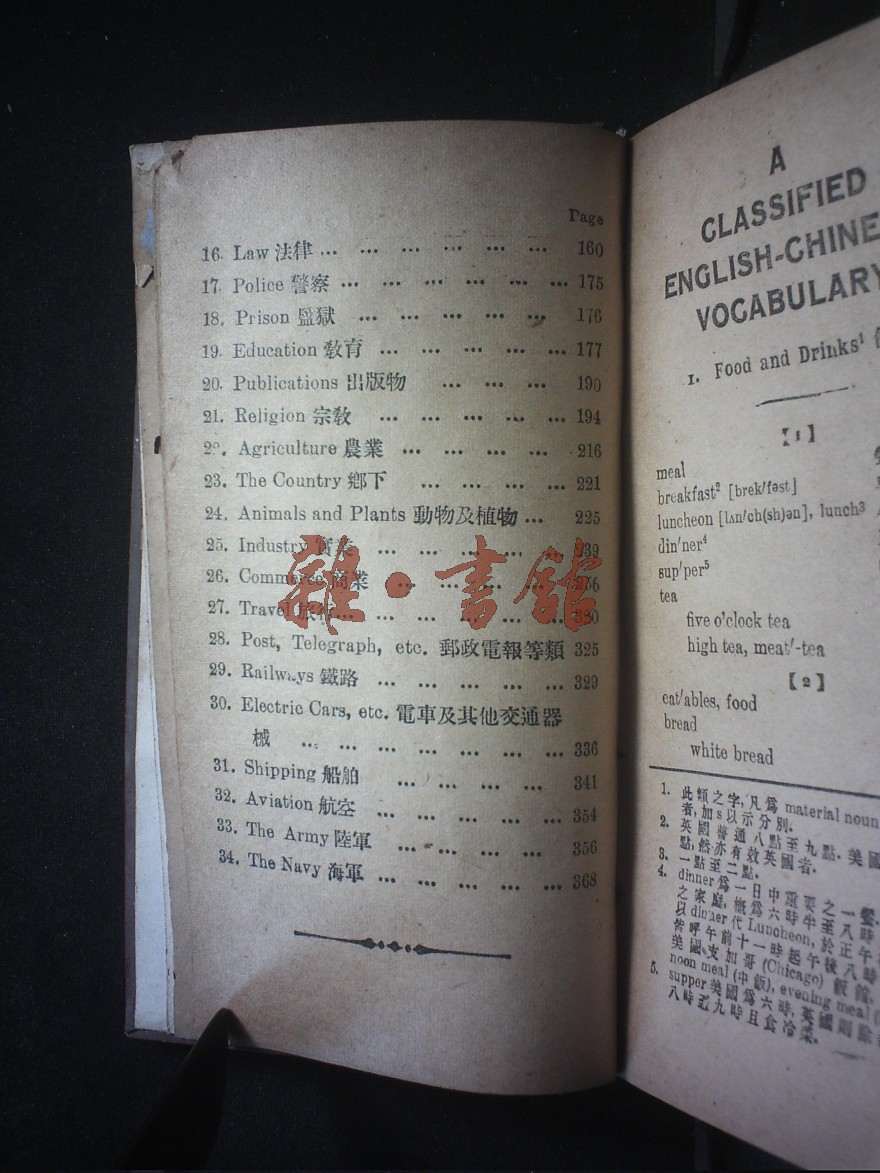 Page
16. Law 法律 ... ... ... ... ... ... 160
17. Police 警察 ... ... ... ... ... ... 175
18. Prison 監獄 ... ... ... ... ... 176
19. Education 敎育 ... ... ... ... ... 177
20. Publications 出版物 ... ... ... 190
21. Religion 宗敎 ... ... ... ... ... 194
Agriculture 農業 ... ... ... ... ... 216
23. The Country 鄉下 ... ... ... ... 221
24. Animals and Plants 動物及植物 ... 225
25. Industry 實業 ... ... ... ... ...
26. Commerce 商業 ... ... ... ... ...
27. Travel 旅行 ... ... ... ... ... ...
28. Post, Telegraph, etc. 郵政電報等類 325
29. Railways 鐵路 ... ... ... ... ... 329
30. Electric Cars, etc. 電車及其他交通器
械 ... ... ... ... ... ... ... 336
31. Shipping 船舶 ... ... ... ... ... 341
32. Aviation 航空 ... ... ... ... ... 354
33. The Army 陸軍 ... ... ... ... 356
34. The Navy 海軍 ... ... ... ... ... 368
雜·書館
A
CLASSIFIED
ENGLISH-CHINE
VOCABULARY
1. Food and Drinks¹
【1】
meal
breakfast² [brek′fəst]
luncheon [lʌn′ch(sh)ən], lunch³
din′ner⁴
sup′per⁵
tea
five o'clock tea
high tea, meat′-tea
【2】
eat′ables, food
bread
white bread
1. 此類之字,凡爲 material noun
者,加s以示分別.
2. 英國普通八點至九點. 美國
點,然亦有效英國者.
3. 一點至二點.
4. dinner 爲一日中重要之一餐.
之家庭,概爲六時半至八時
以 dinner 代 Luncheon, 於正午
皆呼午前十一時起午後八時
美國支加哥 (Chicago) 飯館,
noon meal (中飯), evening meal
5. supper 美國爲六時,英國則除
八時至九時且食冷菜.